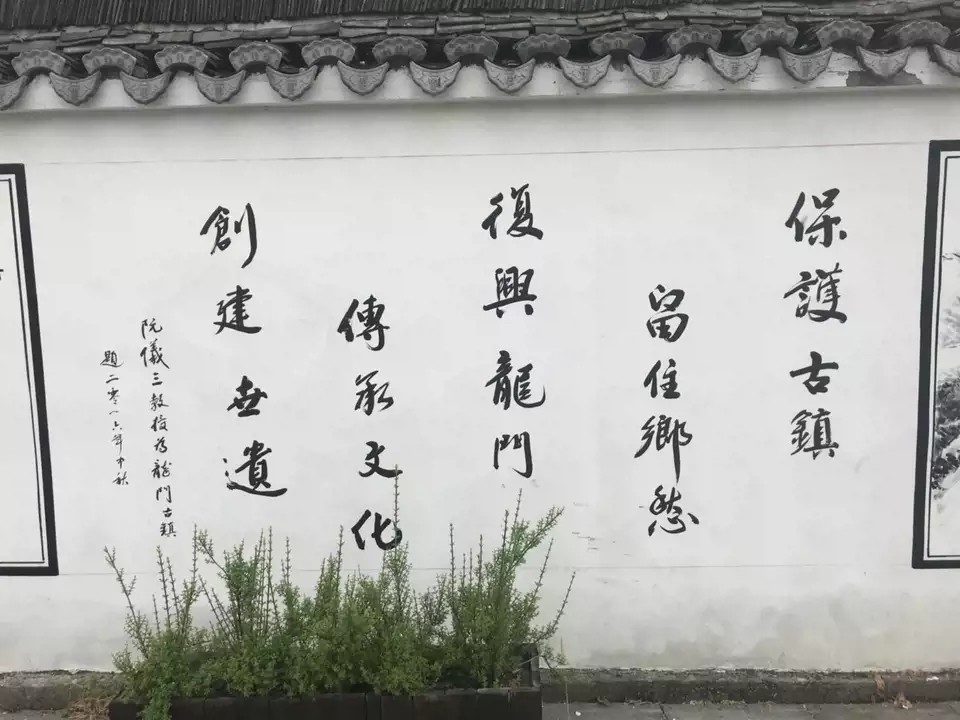 保護古鎮
留住鄉愁
復興龍門
傳承文化
創建世遺
阮儀三教授為龍門古鎮
題二零一六年中秋